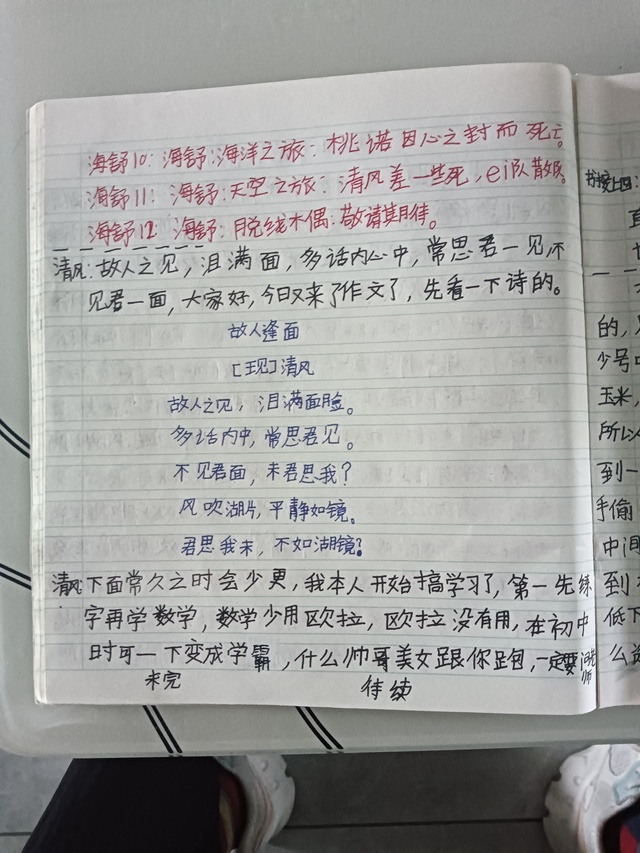 海舒10：海舒：海洋之旅：桃诺因心之封而死亡。
海舒11：海舒：天空之旅：清风差一些死，ei队散队。
海舒12 海舒：脱线木偶：敬请期待。
清风：故人之见，泪满面，多话内心中，常思君一见，不
见君一面，大家好，今日又来了作文了，先看一下诗的。
故人逢面
[王现]清风
故人之见，泪满面脸。
多话内中，常思君见。
不见君面，未君思我？
风吹湖片，平静如镜。
君思我未，不如湖镜？
清风：下面常久之时会少更，我本人开始搞学习了，第一先练
字再学数学，数学少用欧拉，欧拉没有用，在初中
时可一下变成学霸，什么帅哥美女跟你跑，一定要
未完 待续
书接上回：
的，
少号
玉米，
所以
到一
手偷
中间
到
低下
么